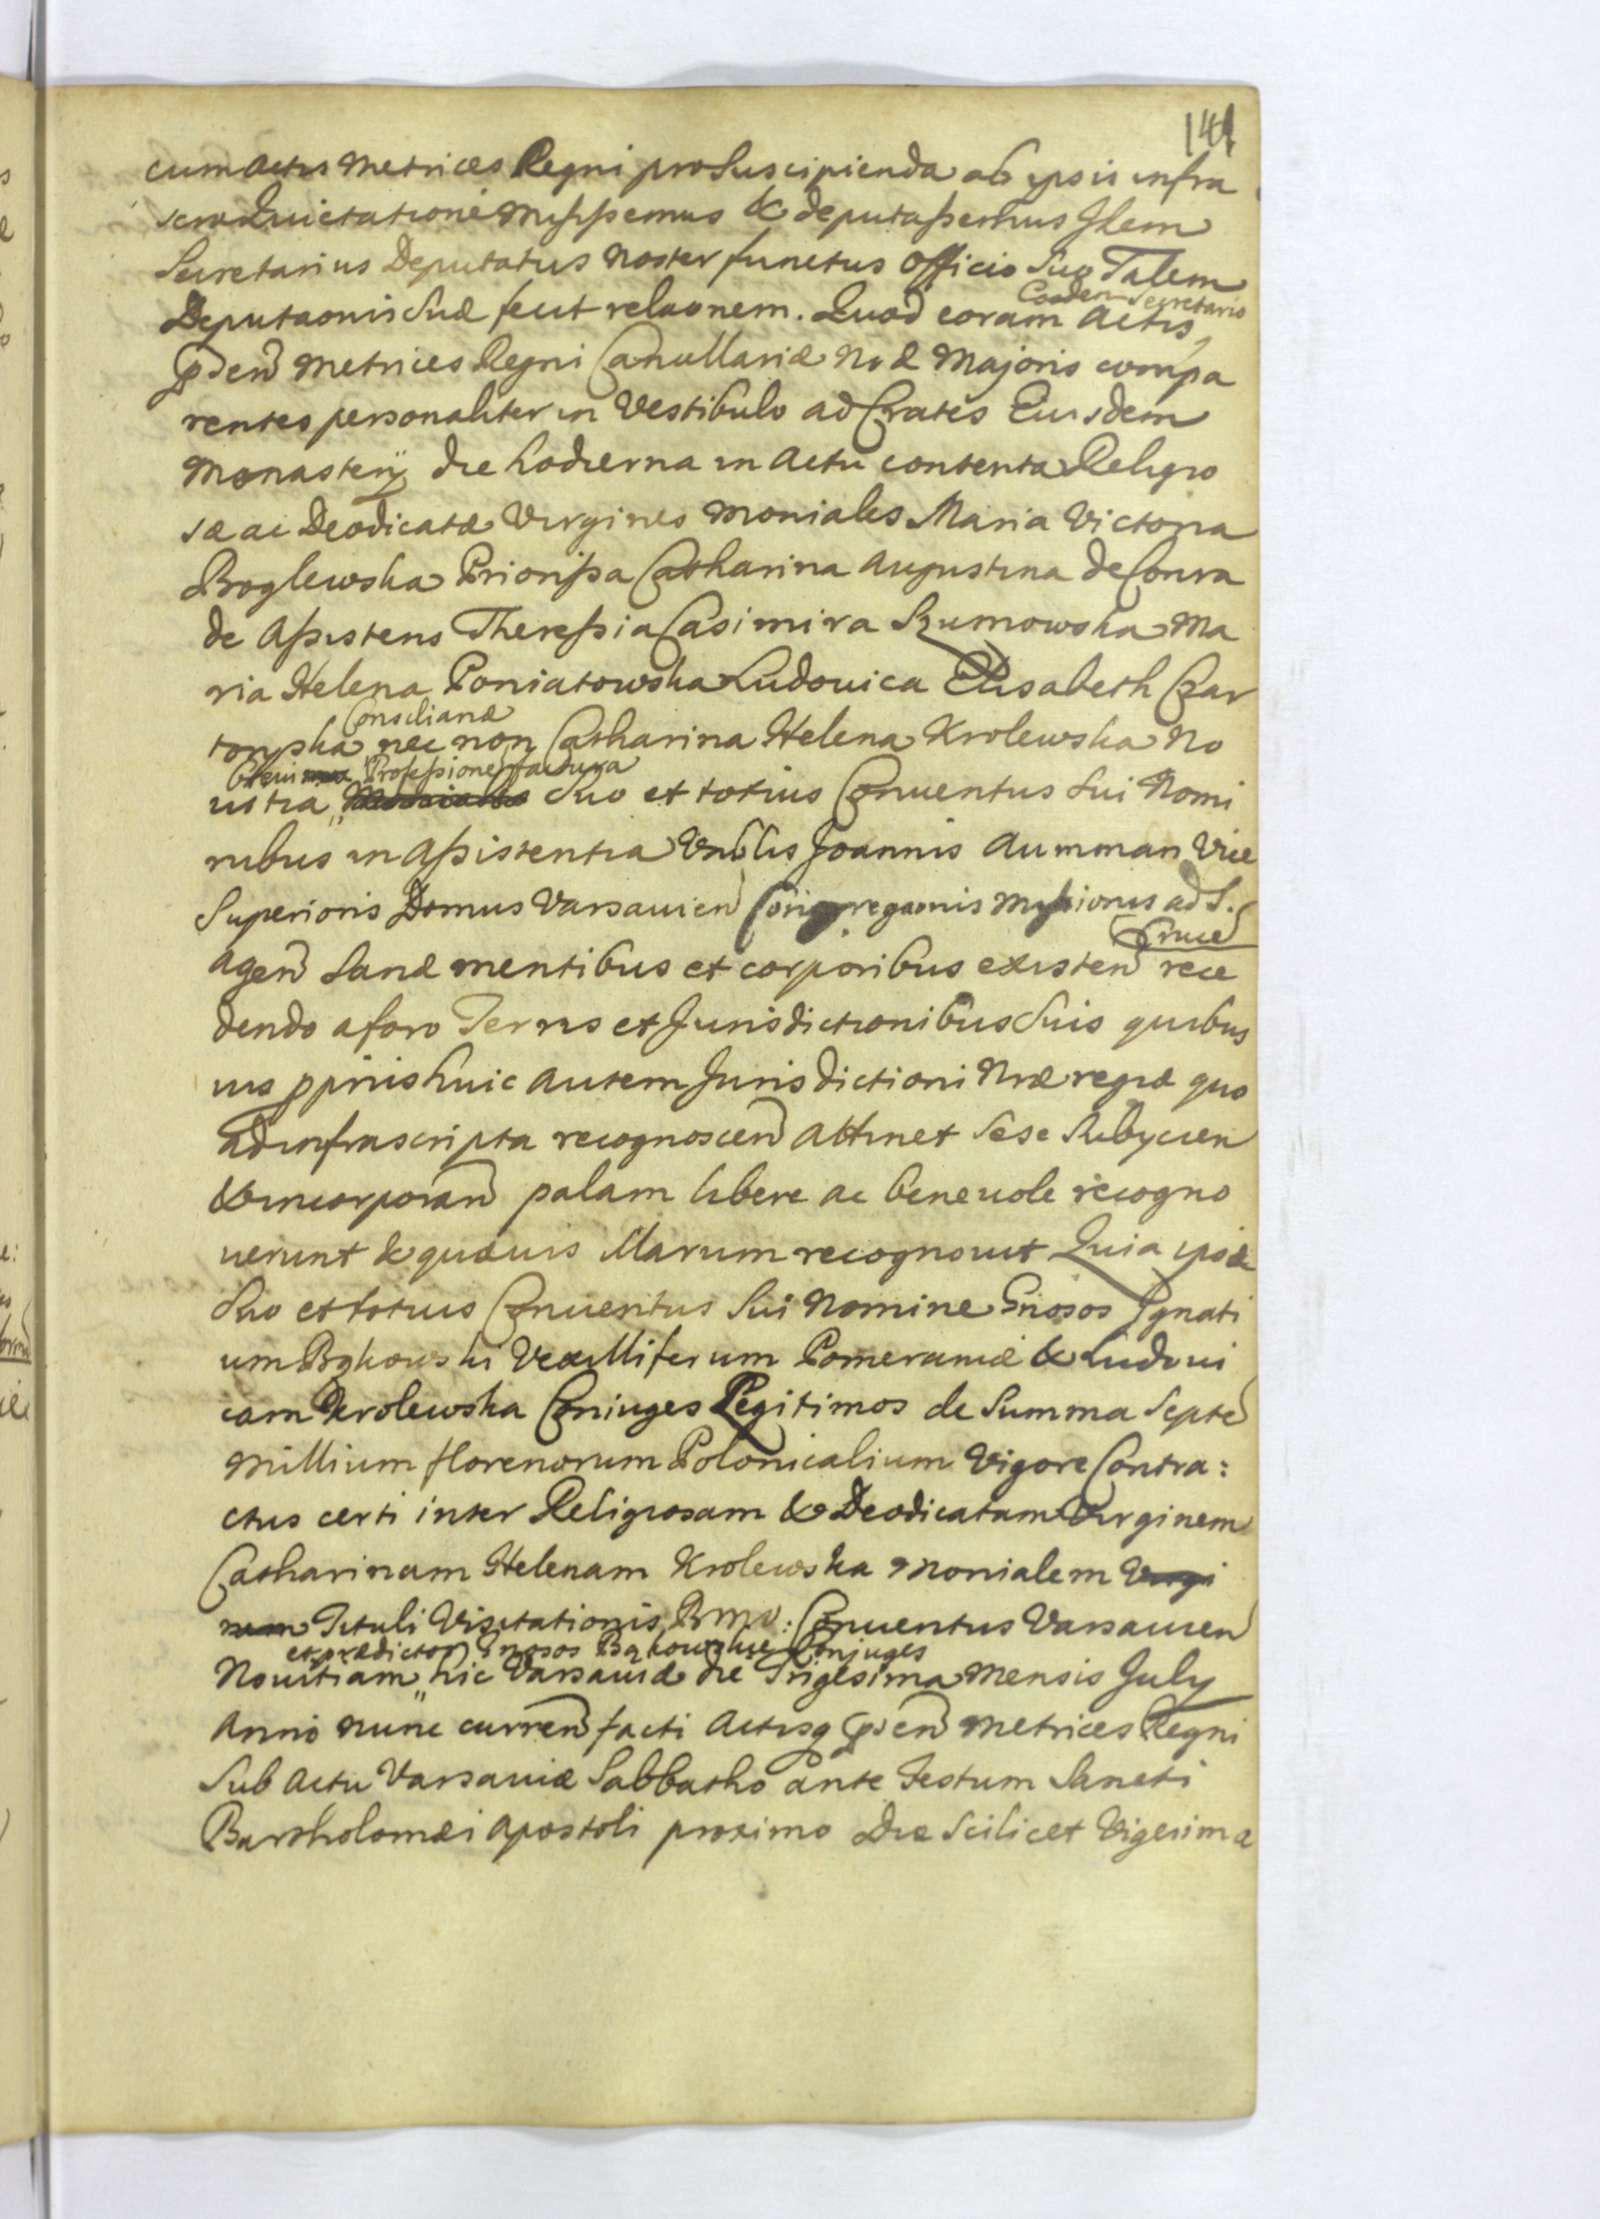 141
cum Actis Metrices Regni pro Suscipienda ab ipsis infra
scra Quietatione misissemus & deputassemus Idem
Secretarius Deputatus noster functus Officio Suo Talem
Deputaonis Suæ fecit relaonem. Quod coram Eodem Secretario Actis
pñtẽ Metrices Regni Cancellariæ Nræ Majoris compa
rentes personaliter in Vestibulo ad Crates Eiusdem
Monasterÿ die hodierna in Actu contenta Religio
sæ ac Deodicatæ Virgines Moniales Maria Victoria
Boglewska Priorissa Catharina Augustina de Conra
de Assistens Theressia Casimira Szumowska Ma
ria Helena Poniatowska Ludovica Elisabeth Czar
toryska Consiliariæ nec non Catharina Helena Krolewska No
uitia brevi Professionem factura Moniales Suo et totius Conuentus Sui Nomi
nibus in Assistentia Vnblis Joannis Aumman Vice
Superioris Domus Varsauien Congregaonis Missionis ad S.
Crucẽ
Agen Sanæ mentibus et corporibus existen rece
dendo a foro Terris et Jurisdictionibus Suis quibus
uis ppriis huic autem Jurisdictioni Nræ regiæ quo
ad infrascripta recognoscen Attinet Sese Subÿcien
& incorporan palam libere ac beneuole recogno
uerunt & quæuis Illarum recognouit Quia ipsæ
Suo et totius Conuentus Sui Nomine Gnosos Ignati
um Bąkowski Vexilliferum Pomeraniæ & Ludoui
cam Krolewska Coniuges Legitimos de Summa Septẽ
Millium florenorum Polonicalium Vigore Contra:
ctus certi inter Religiosam & Deodicatam Virginem
Catharinam Helenam Krolewska Monialem Virgi
nem Tituli Visitationis B M V: Conuentus Varsauien
Nouitiam et prædictos Gnosos Bąkowskie Conjuges hic Varsauiæ die Trigesima Mensis July
Anno nunc curren facti Actisq pñtẽ Metrices Regni
Sub Actu Varsauiæ Sabbatho ante Festum Sancti
Bartholomæi Apostoli proximo Die Scilicet Vigesima